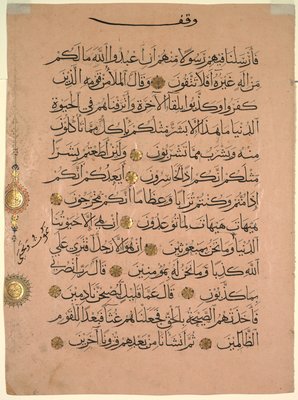 وقف
فأرسلنا فيهم رسولا منهم أن اعبدوا الله ما لكم
من إله غيره أفلا تتقون وقال الملأ من قومه الذين
كفروا وكذبوا بلقاء الآخرة وأترفناهم في الحيوة
الدنيا ما هذا إلا بشر مثلكم يأكل مما تأكلون
منه ويشرب مما تشربون ولئن أطعتم بشرا
مثلكم إنكم إذا لخاسرون أيعدكم أنكم
إذا متم وكنتم ترابا وعظاما أنكم مخرجون
هيهات هيهات لما توعدون إن هي إلا حيوتنا
الدنيا وما نحن بمبعوثين إن هو إلا رجل افترى على
الله كذبا وما نحن له بمؤمنين قال رب انصرني
بما كذبون قال عما قليل ليصبحن نادمين
فأخذتهم الصيحة بالحق فجعلناهم غثاء فبعدا للقوم
الظالمين ثم أنشأنا من بعدهم قرونا آخرين
نموت ونحيا